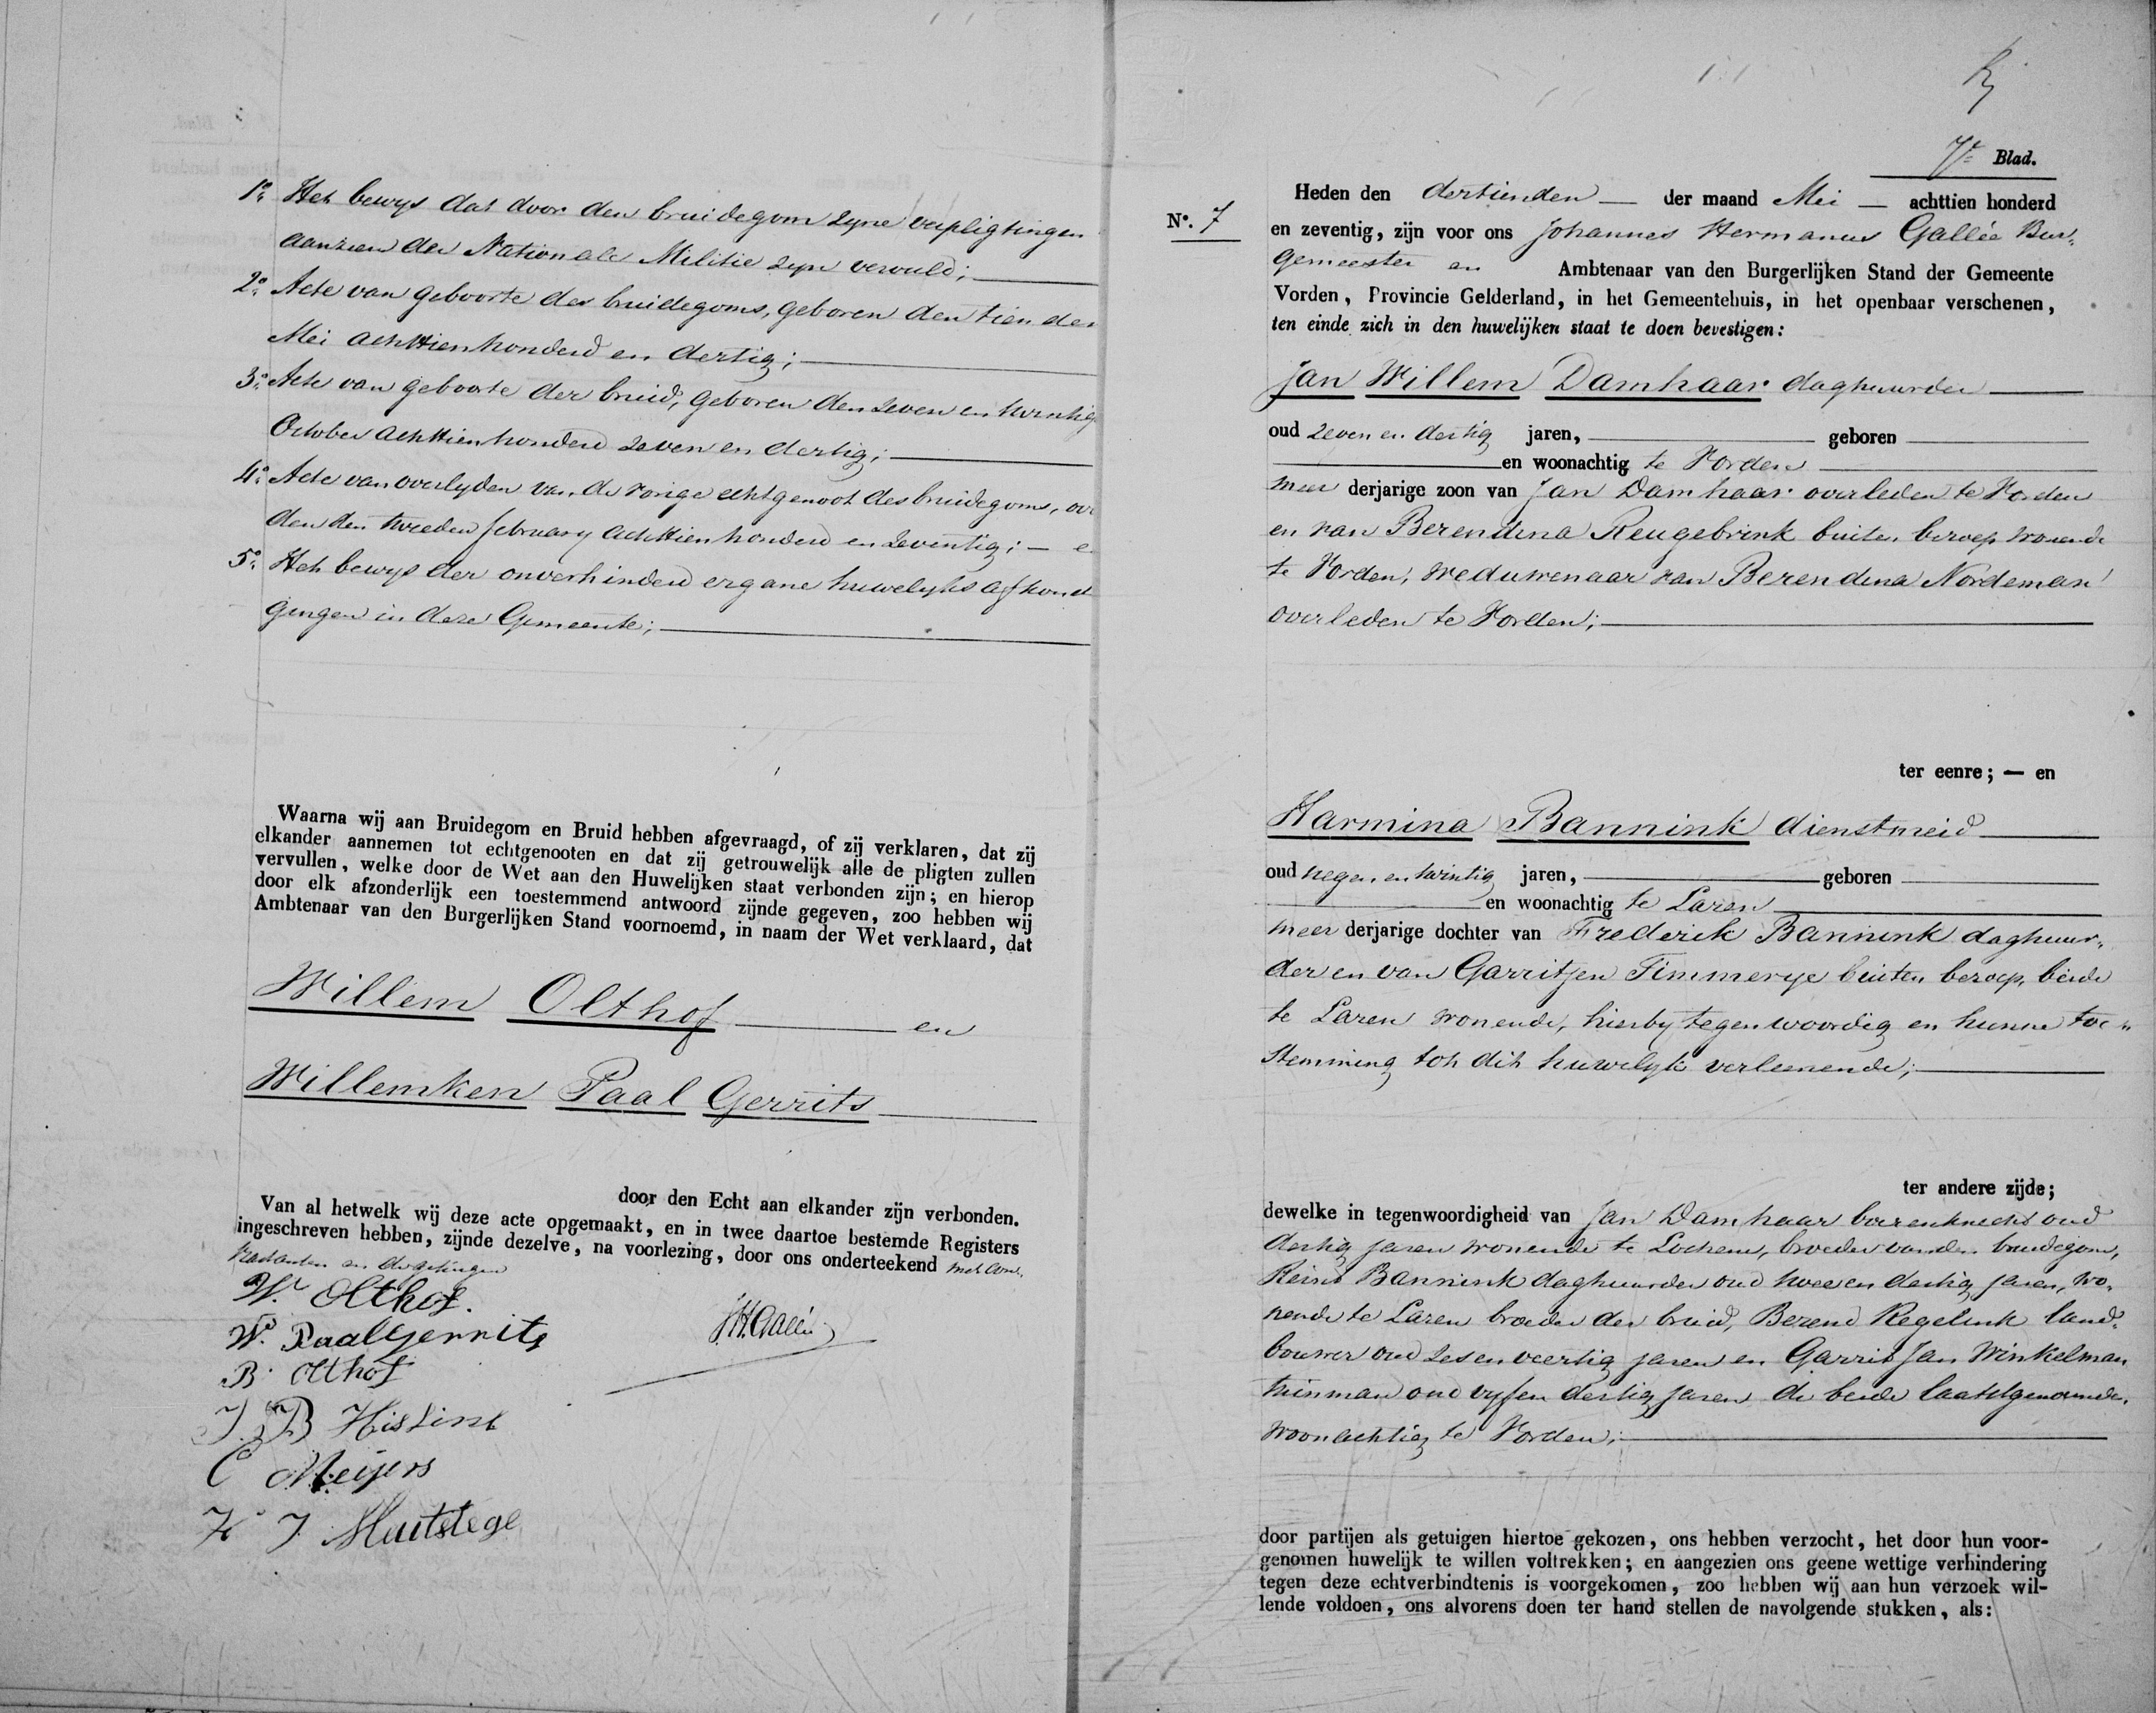 1º Het bewys dat door den bruidegom zyne verpligtingen
aanzien der Nationale Militie zyn vervuld;
2º Acte van geboorte des bruidegoms, geboren den tienden
Mei achttienhonderd en dertig;
3º Acte van geboorte der bruid, geboren den zeven en twintig
October achttienhonderd zeven en dertig;
4º Acte van overlyden van de vorige echtgenoot des bruidegoms, over
den den tweeden february achttienhonderd en zeventig; — e
5º Het bewys der onverhinderd ergane huwelyks afkondi
gingen in deze Gemeente;
Waarna wij aan Bruidegom en Bruid hebben afgevraagd, of zij verklaren, dat zij
elkander aannemen tot echtgenooten en dat zij getrouwelijk alle de pligten zullen
vervullen, welke door de Wet aan den Huwelijken staat verbonden zijn; en hierop
door elk afzonderlijk een toestemmend antwoord zijnde gegeven, zoo hebben wij
Ambtenaar van den Burgerlijken Stand voornoemd, in naam der Wet verklaard, dat
Willem Olthof en
Willemken Paal Gerrits
door den Echt aan elkander zijn verbonden.
Van al hetwelk wij deze acte opgemaakt, en in twee daartoe bestemde Registers
ingeschreven hebben, zijnde dezelve, na voorlezing, door ons onderteekend met Com„
paranten en de getuigen
W. Olthof.
W. PaalGerrits
JHGallée
B. Olthof
J. B Hissink
C Meijers
7e Blad.
Nº. 7
Heden den dertienden — der maand Mei — achttien honderd
en zeventig, zijn voor ons Johannes Hermanus Gallée Bur„
gemeester en Ambtenaar van den Burgerlijken Stand der Gemeente
Vorden, Provincie Gelderland, in het Gemeentehuis, in het openbaar verschenen,
ten einde zich in den huwelijken staat te doen bevestigen:
Jan Willem Damhaar daghuurder
oud zeven en dertig jaren, geboren
en woonachtig te Vorden
meer derjarige zoon van Jan Damhaar overleden te Vorden
en van Berendina Reugebrink buiten beroep wonende
te Vorden, weduwenaar van Berendina Nordeman
overleden te Vorden;
ter eenre; — en
Harmina Bannink dienstmeid
oud negen en twintig jaren, geboren
en woonachtig te Laren
meer derjarige dochter van Frederik Bannink daghuur„
der en van Garritjen Timmerye buiten beroep, beide
te Laren wonende, hierby tegenwoordig en hunne toe„
stemming tot dit huwelyk verleenende;
ter andere zijde;
dewelke in tegenwoordigheid van Jan Damhaar boerenknecht oud
dertig jaren wonende te Lochem, broeder van den bruidegom,
Reind Bannink daghuurder oud twee en dertig jaren, wo„
nende te Laren broeder der bruid, Berend Regelink land„
bouwer oud zes en veertig jaren en Garrit Jan Winkelman
tuinman oud vyf en dertig jaren de beide laatstgenoemden
woonachtig te Vorden;
door partijen als getuigen hiertoe gekozen, ons hebben verzocht, het door hun voor-
genomen huwelijk te willen voltrekken; en aangezien ons geene wettige verhindering
tegen deze echtverbindtenis is voorgekomen, zoo hebben wij aan hun verzoek wil-
lende voldoen, ons alvorens doen ter hand stellen de navolgende stukken, als: